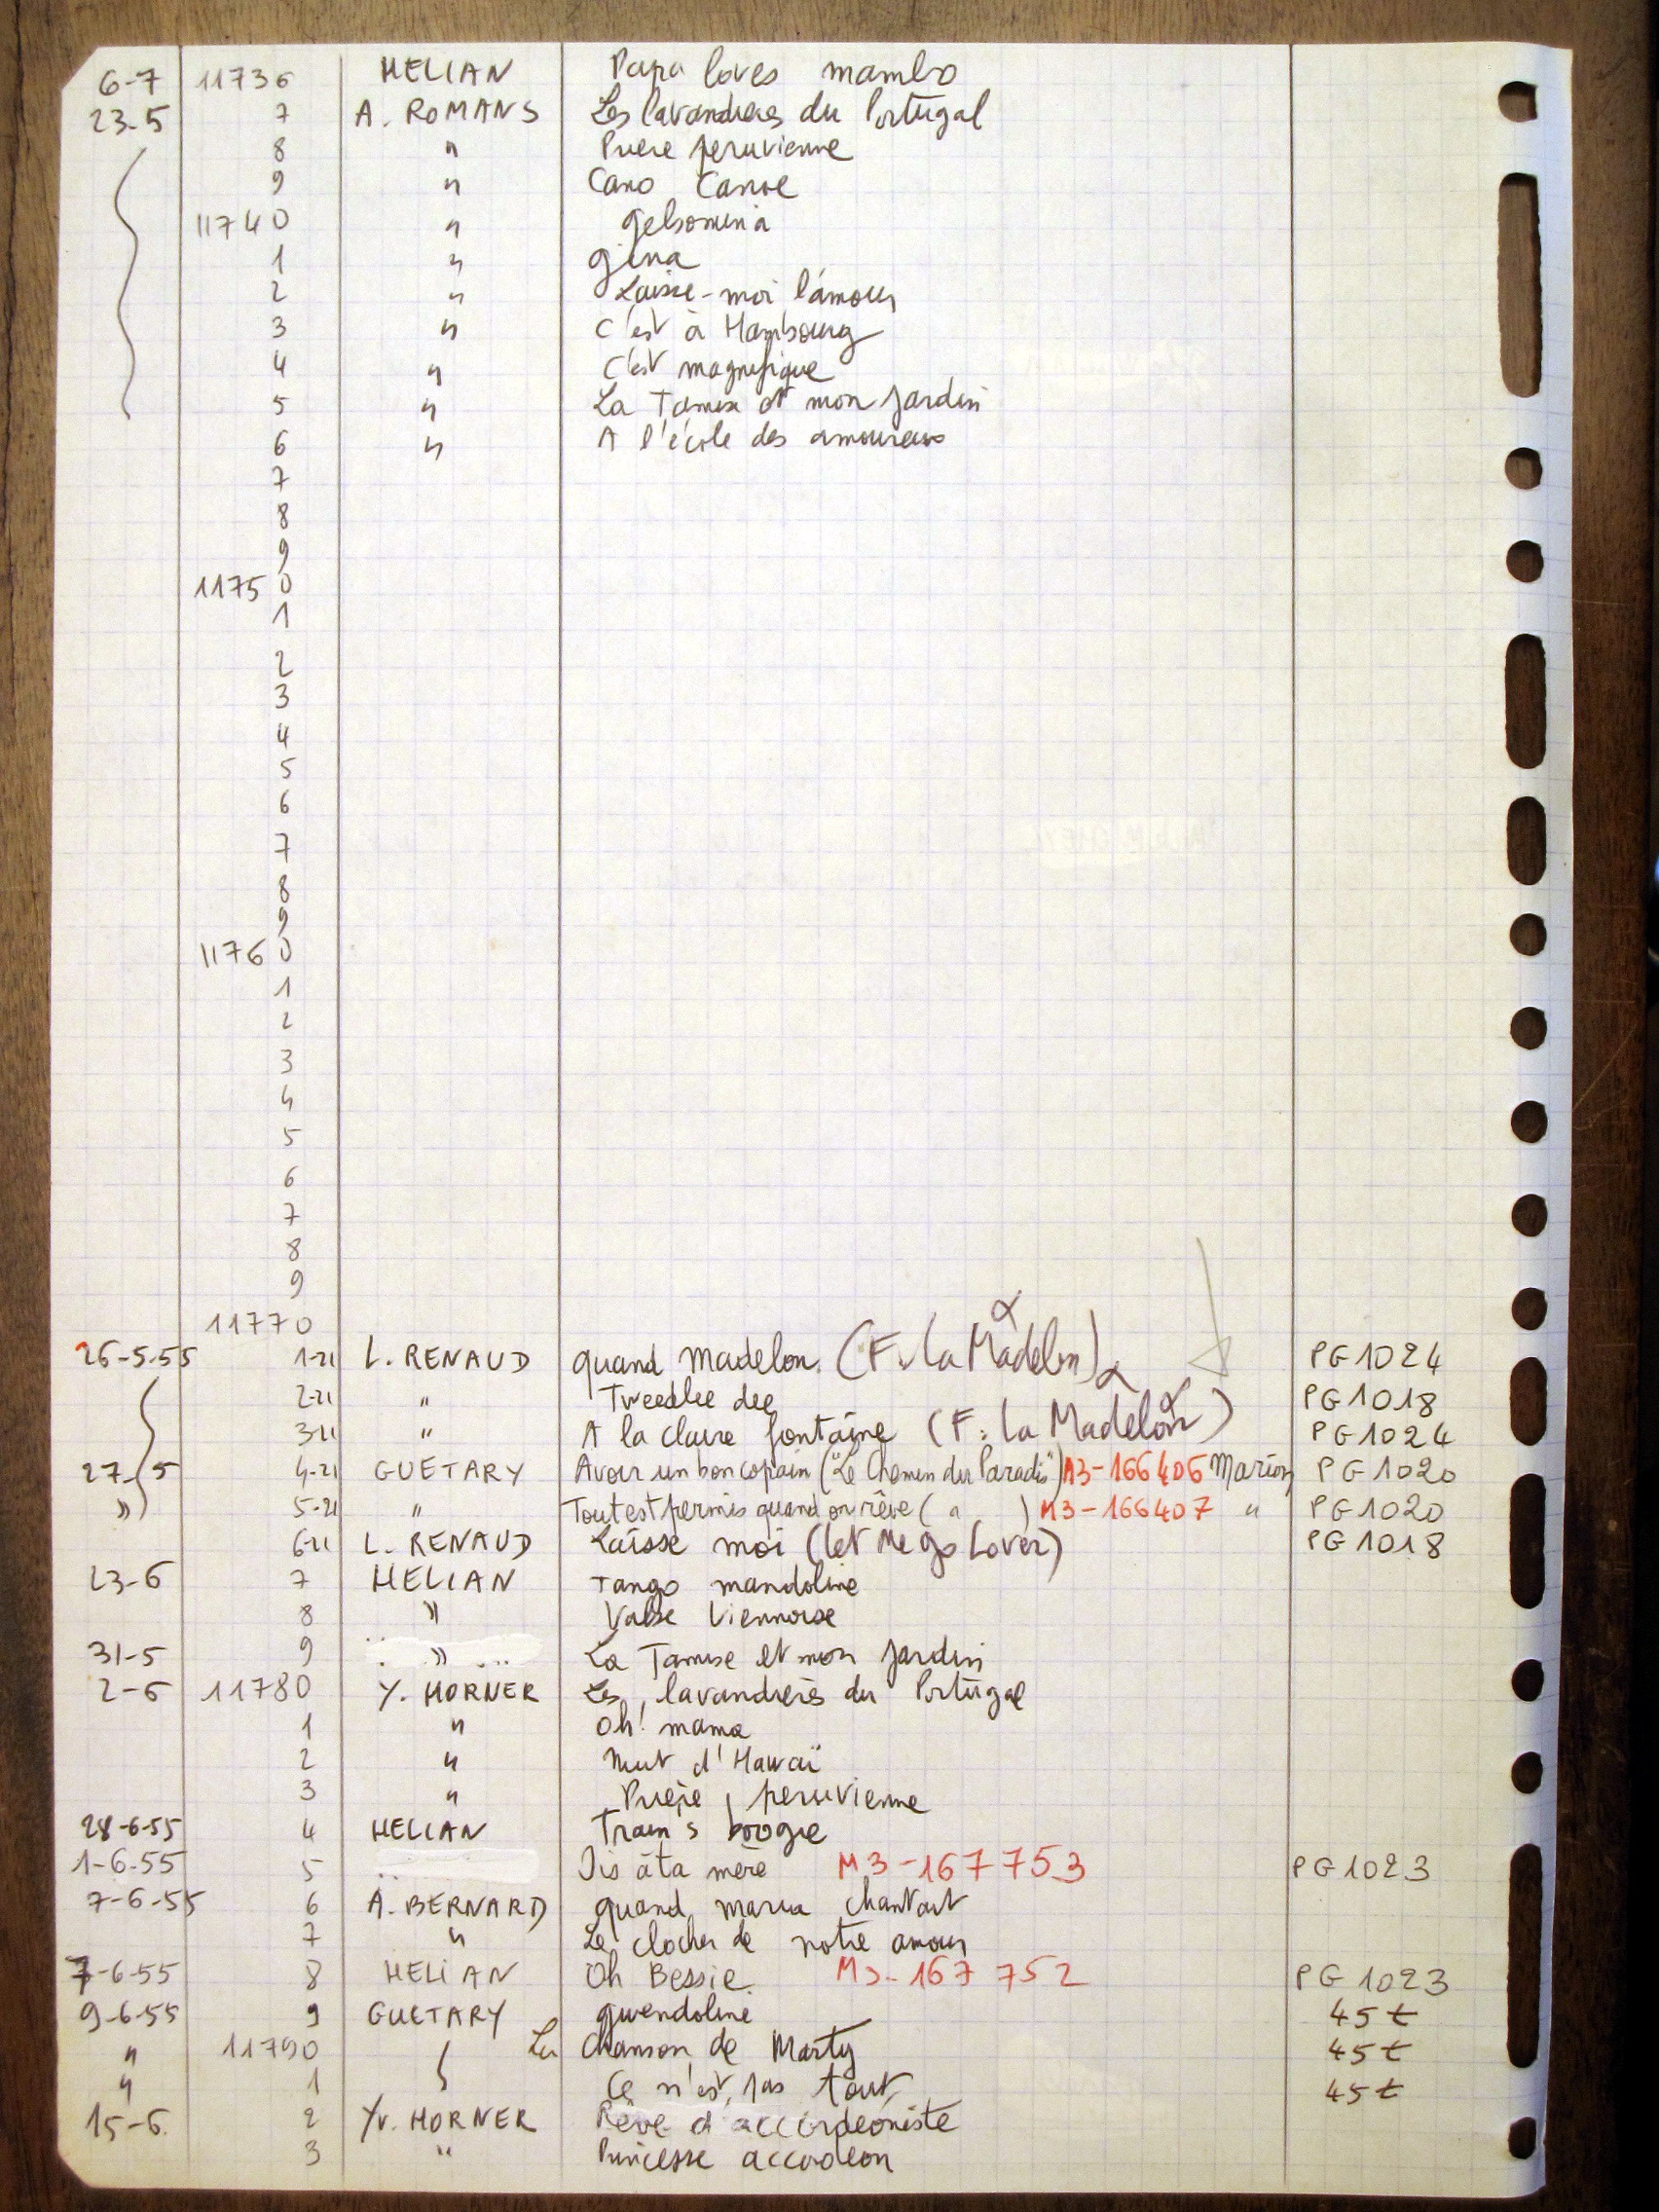 6-7 11736 HELIAN Papa loves mambo
23-5 7 A. ROMANS Les lavandieres du Portugal
8 " Priere peruvienne
9 " Cano Canoe
11740 " gelsomina
1 " gina
2 " Laisse-moi l'amour
3 " C'est à Hambourg
4 " C'est magnifique
5 " La Tamise et mon jardin
6 " A l'école des amoureux
7
8
9
11750
1
2
3
4
5
6
7
8
9
11760
1
2
3
4
5
6
7
8
9
11770
26-5-55 1-21 L. RENAUD quand Madelon. (F. La Madelon) PG 1024
2-21 " Tweedlee dee PG 1018
3-21 " A la claire fontaine (F: La Madelon) PG 1024
27-5 4-21 GUETARY Avoir un bon copain ("Le Chemin du Paradis") M3-166406 Marion PG 1020
" 5-21 " Tout est permis quand on rêve ( " ) M3-166407 " PG 1020
6-21 L. RENAUD Laisse moi (Let Me go Lover) PG 1018
23-6 7 HELIAN Tango mandoline
8 " Valse Viennoise
31-5 9 " La Tamise et mon jardin
2-6 11780 Y. HORNER Les lavandieres du Portugal
1 " Oh! mama
2 " Nuit d'Hawaï
3 " Prière peruvienne
28-6-55 4 HELIAN Train's boogie
1-6-55 5 Dis à ta mère M3-167753 PG 1023
7-6-55 6 A. BERNARD quand maria chantait
7 " Le clocher de notre amour
7-6-55 8 HELIAN Oh Bessie M3-167 752 PG 1023
9-6-55 9 GUETARY gwendoline 45 t
" 11790 La Chanson de Marty 45 t
" 1 Ce n'est pas tout 45 t
15-6 2 Yv. HORNER Rêve d'accordéoniste
3 " Princesse accordeon